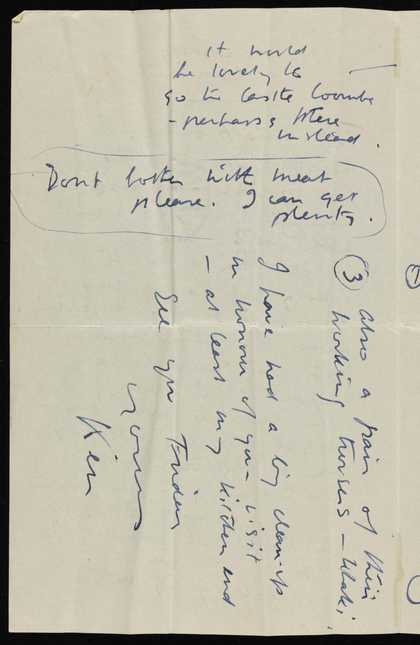 it would
be lovely to
go to Castle Coombe
- perhaps there
instead.
Dont bother with meat
please. I can get
plenty.
(3) Also a pair of thin
working trousers - khaki.
I have had a big clean-up
in honour of your visit
- at least my kitchen end
See you Friday
yours
Ken